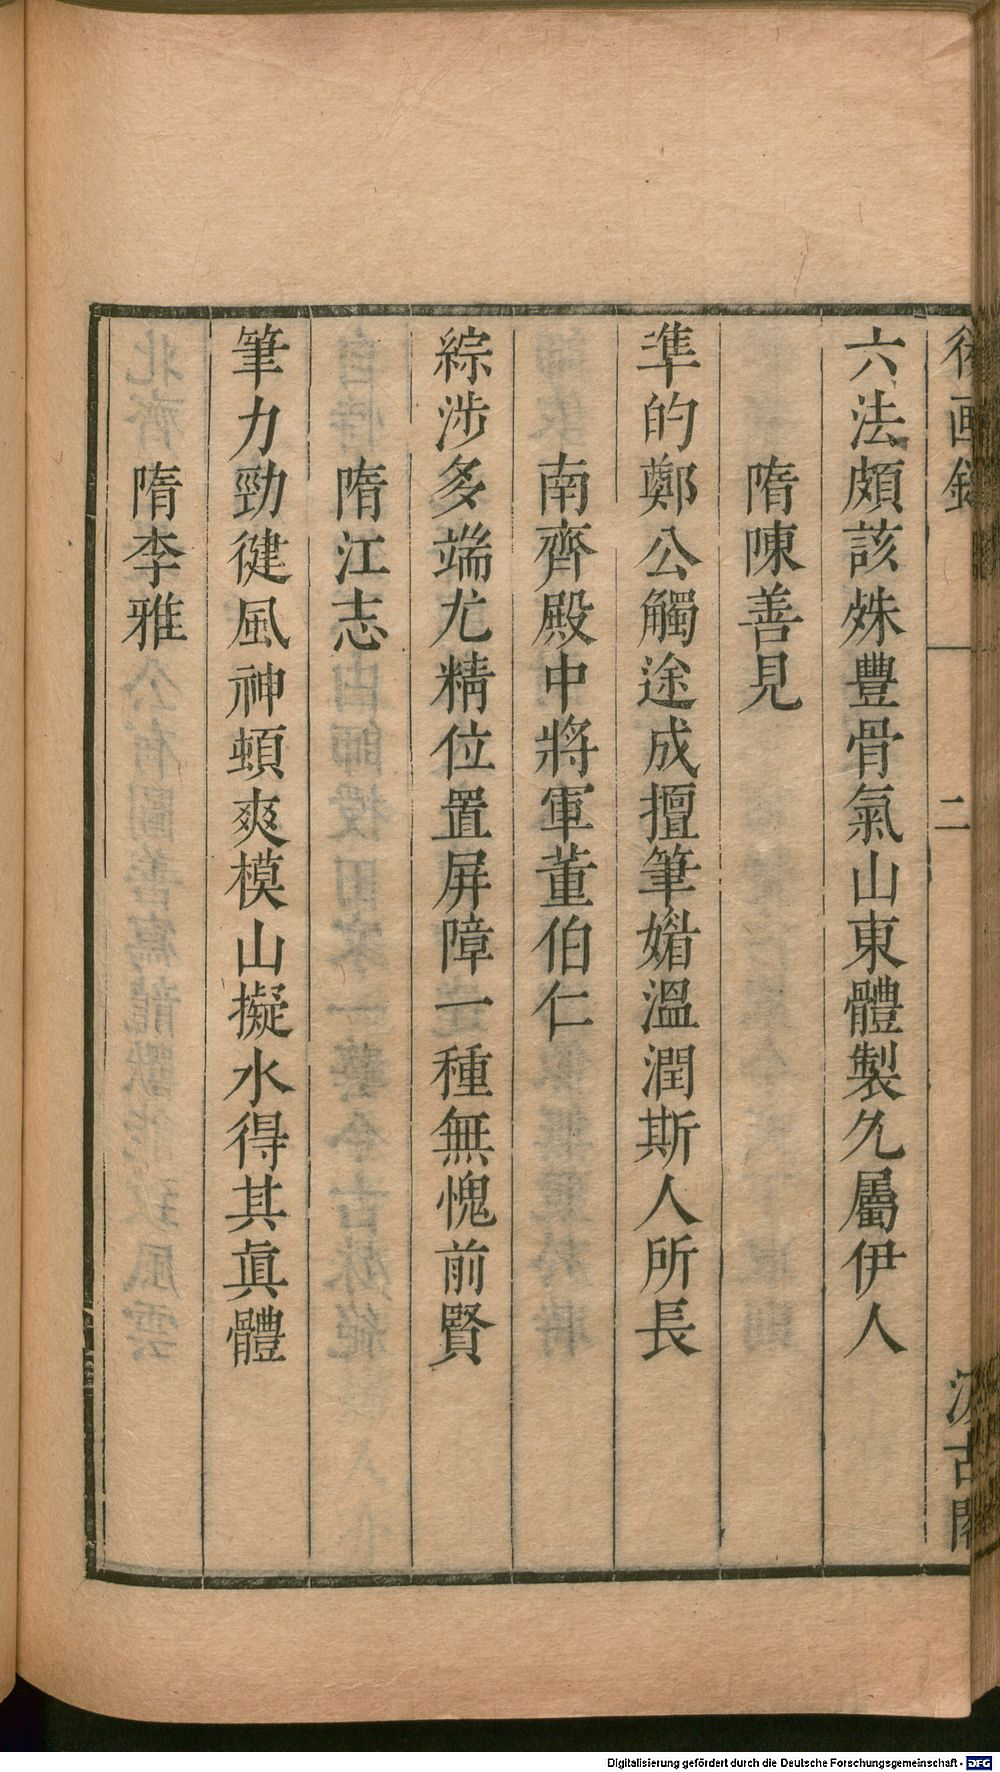 後画錄 二 汲古閣
六法頗該姝豐骨氣山東體製久屬伊人
隋陳善見
準的鄭公觸途成擅筆媚溫潤斯人所長
南齊殿中將軍董伯仁
綜涉多端尤精位置屏障一種無愧前賢
隋江志
筆力勁健風神頓爽模山擬水得其眞體
隋李雅
Digitalisierung gefördert durch die Deutsche Forschungsgemeinschaft - DFG